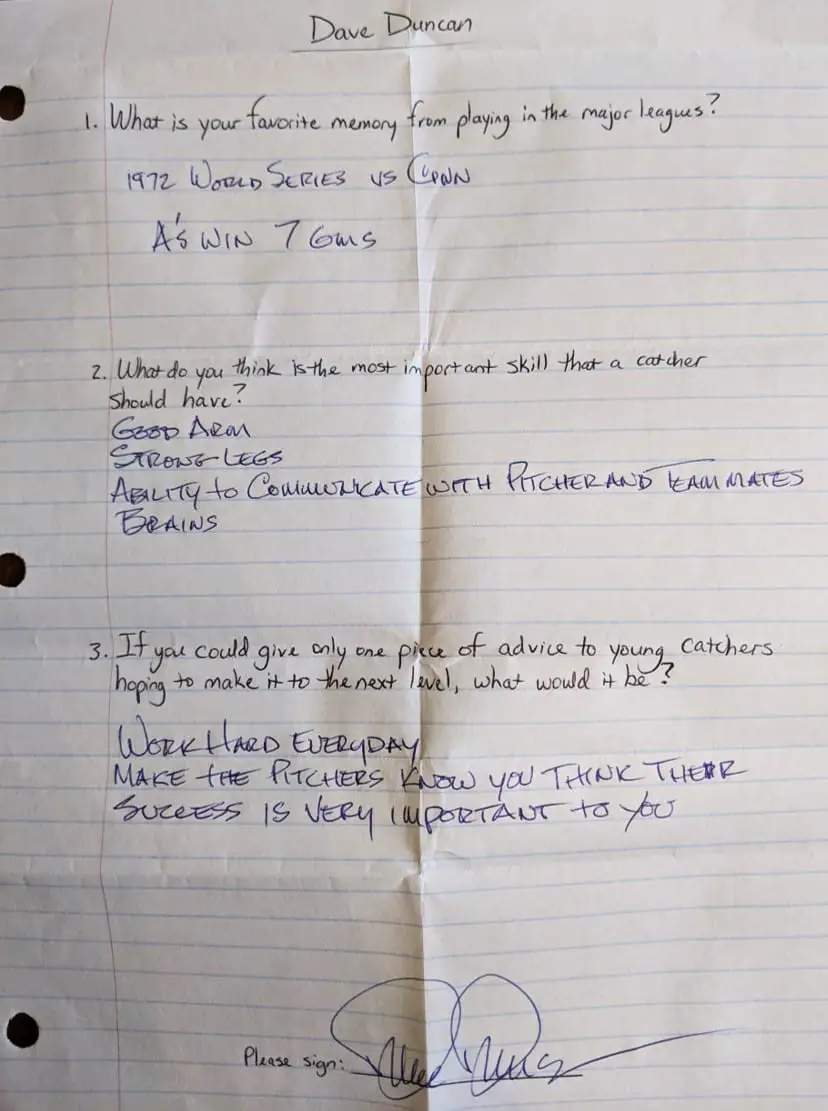 Dave Duncan
1. What is your favorite memory from playing in the major leagues?
1972 WORLD SERIES VS CINN
A'S WIN 7 GMS
2. What do you think is the most important skill that a catcher
should have?
GOOD ARM
STRONG LEGS
ABILITY to COMMUNICATE WITH PITCHER AND TEAMMATES
BRAINS
3. If you could give only one piece of advice to young catchers
hoping to make it to the next level, what would it be?
WORK HARD EVERYDAY
MAKE THE PITCHERS KNOW YOU THINK THEIR
SUCCESS IS VERY IMPORTANT to YOU
Please sign: Dave Duncan